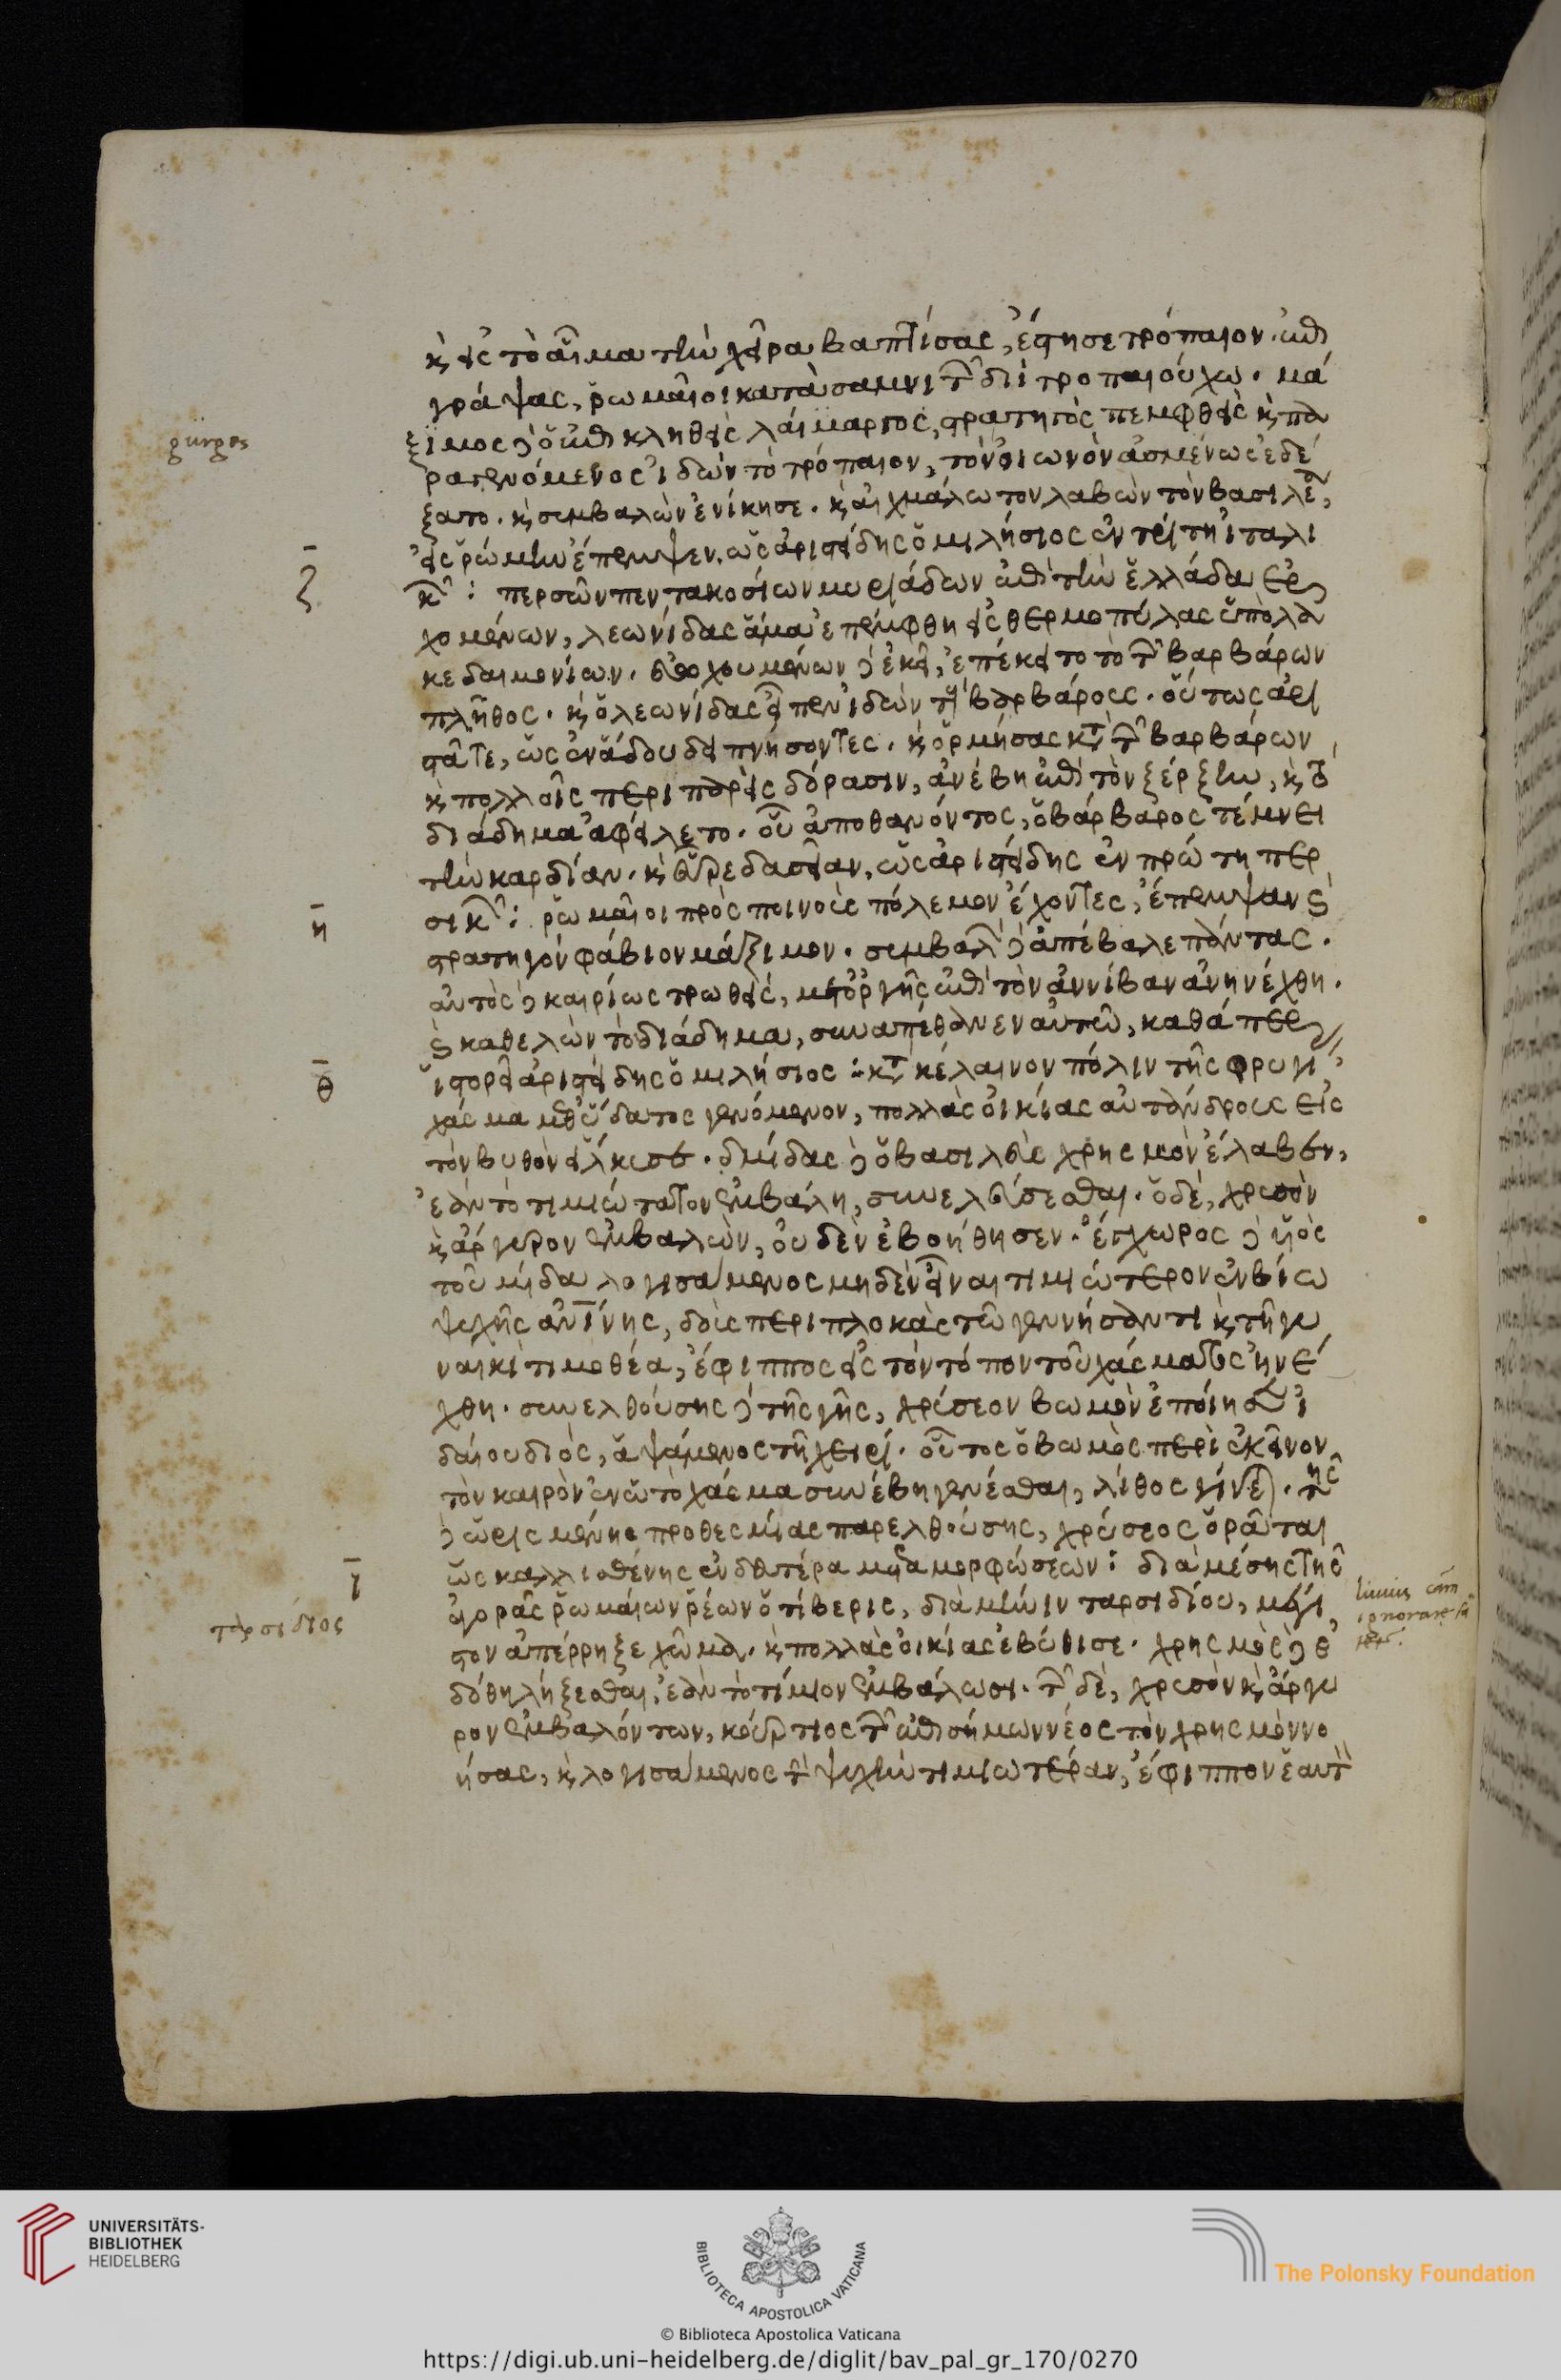 κ εἰς τὸ αἷμα τὴν χεῖρα βαπτίσας, ἔστησε τρόπαιον. ἐπι
γράψας, ῥωμαῖοι κατὰ σαμνιτῶν διὶ τροπαιούχω. μά
gurges
ξιμος δὲ ὁ ἐπικληθεὶς λαίμαργος, στρατηγὸς πεμφθεὶς κ πα
ραγενόμενος ἰδὼν τὸ τρόπαιον, τὸν οἰωνὸν ἀσμένως ἐδέ
ξατο. κ συμβαλὼν ἐνίκησε. κ αἰχμάλωτον λαβὼν τὸν βασιλέα,
εἰς ῥώμην ἔπεμψεν. ὡς ἀριστείδης ὁ μιλήσιος ἐν τρίτη ἰταλι
ζ
κῶν: περσῶν πεντακοσίων μυριάδων ἐπὶ τὴν ἑλλάδα ἐρ
χομένων, λεωνίδας ἅμα ἐπέμφθη εἰς θερμοπύλας ὑπὸ λα
κεδαιμονίων. εὐωχουμένων δὲ ἐκεῖ, ἐπέκειτο τὸ τῶν βαρβάρων
πλῆθος. κ ὁ λεωνίδας εἶπεν ἰδὼν τοὺς βαρβάρους. οὕτως ἀρι
στᾶτε, ὡς ἐν ἅδου δειπνήσοντες. κ ὁρμήσας κατὰ τῶν βαρβάρων
κ πολλοῖς περιπαρεὶς δόρασιν, ἀνέβη ἐπὶ τὸν ξέρξην, κ τὸ
διάδημα ἀφείλετο. οὗ ἀποθανόντος, ὁ βάρβαρος τέμνει
τὴν καρδίαν. κ εὗρε δασεῖαν, ὡς ἀριστείδης ἐν πρώτη περ
η
σικῶν: ῥωμαῖοι πρὸς ποινοὺς πόλεμον ἔχοντες, ἔπεμψαν
στρατηγὸν φάβιον μάξιμον. συμβαλὼν δὲ ἀπέβαλε πάντας.
αὐτὸς δὲ καιρίως τρωθεὶς, μετ' ὀργῆς ἐπὶ τὸν ἀννίβαν ἀνηνέχθη.
κ καθελὼν τὸ διάδημα, συναπέθανεν αὐτῶ, καθάπερ
θ
ἱστορεῖ ἀριστείδης ὁ μιλήσιος: κατὰ κέλαινον πόλιν τῆς φρυγί
χάσμα μεθ' ὕδατος γενόμενον, πολλὰς οἰκίας αὐτάνδρους εἰς
τὸν βυθὸν εἵλκυσε. μίδας δὲ ὁ βασιλεὺς χρησμὸν ἔλαβεν,
ἐὰν τὸ τιμιώτατον ἐμβάλη, συνελεύσεσθαι. ὁ δὲ, χρυσὸν
κ ἄργυρον ἐμβαλὼν, οὐδὲν ἐβοήθησεν. ἔγχωρος δὲ υἱὸς
τοῦ μίδα λογισάμενος μηδὲν εἶναι τιμιώτερον ἐν βίω
ψυχῆς ἀνθίνης, δοὺς περιπλοκὰς τῶ γεννήσαντι κ τῆ γυ
ναικὶ τιμοθέα, ἔφιππος εἰς τὸν τόπον τοῦ χάσματος ἠνέ
χθη. συνελθούσης δὲ τῆς γῆς, χρύσεον βωμὸν ἐποίησεν ἰ
δαίου διὸς, ἁψάμενος τῆ χειρί. οὗτος ὁ βωμὸς περὶ ἐκεῖνον
τὸν καιρὸν ἐν ὧ τὸ χάσμα συνέβη γενέσθαι, λίθος γίνεται. τῆς
δὲ ὡρισμένης προθεσμίας παρελθούσης, χρύσεος ὁρᾶται
ὡς καλλισθένης ἐν δευτέρα μεταμορφώσεων: διὰ μέσης τῆς
ι
ἀγορᾶς ῥωμαίων ῥέων ὁ τίβερις, διὰ μῆνιν ταρσιδίου, μέγι
ταρσίδιος
στον ἀπέρρηξε χῶμα. κ πολλὰς οἰκίας ἐβύθισε. χρησμὸς δὲ ἐ
δόθη λήξεσθαι, ἐὰν τὸ τίμιον ἐμβάλωσι. τῶν δὲ, χρυσὸν κ ἄργυ
ρον ἐμβαλόντων, κούρτιος τῶν ἐπισήμων νέος τὸν χρησμὸν νο
ήσας, κ λογισάμενος τὴν ψυχὴν τιμιωτέραν, ἔφιππον ἑαυτὸν
UNIVERSITÄTS-
BIBLIOTHEK
HEIDELBERG
BIBLIOTECA APOSTOLICA VATICANA
The Polonsky Foundation
© Biblioteca Apostolica Vaticana
https://digi.ub.uni-heidelberg.de/diglit/bav_pal_gr_170/0270